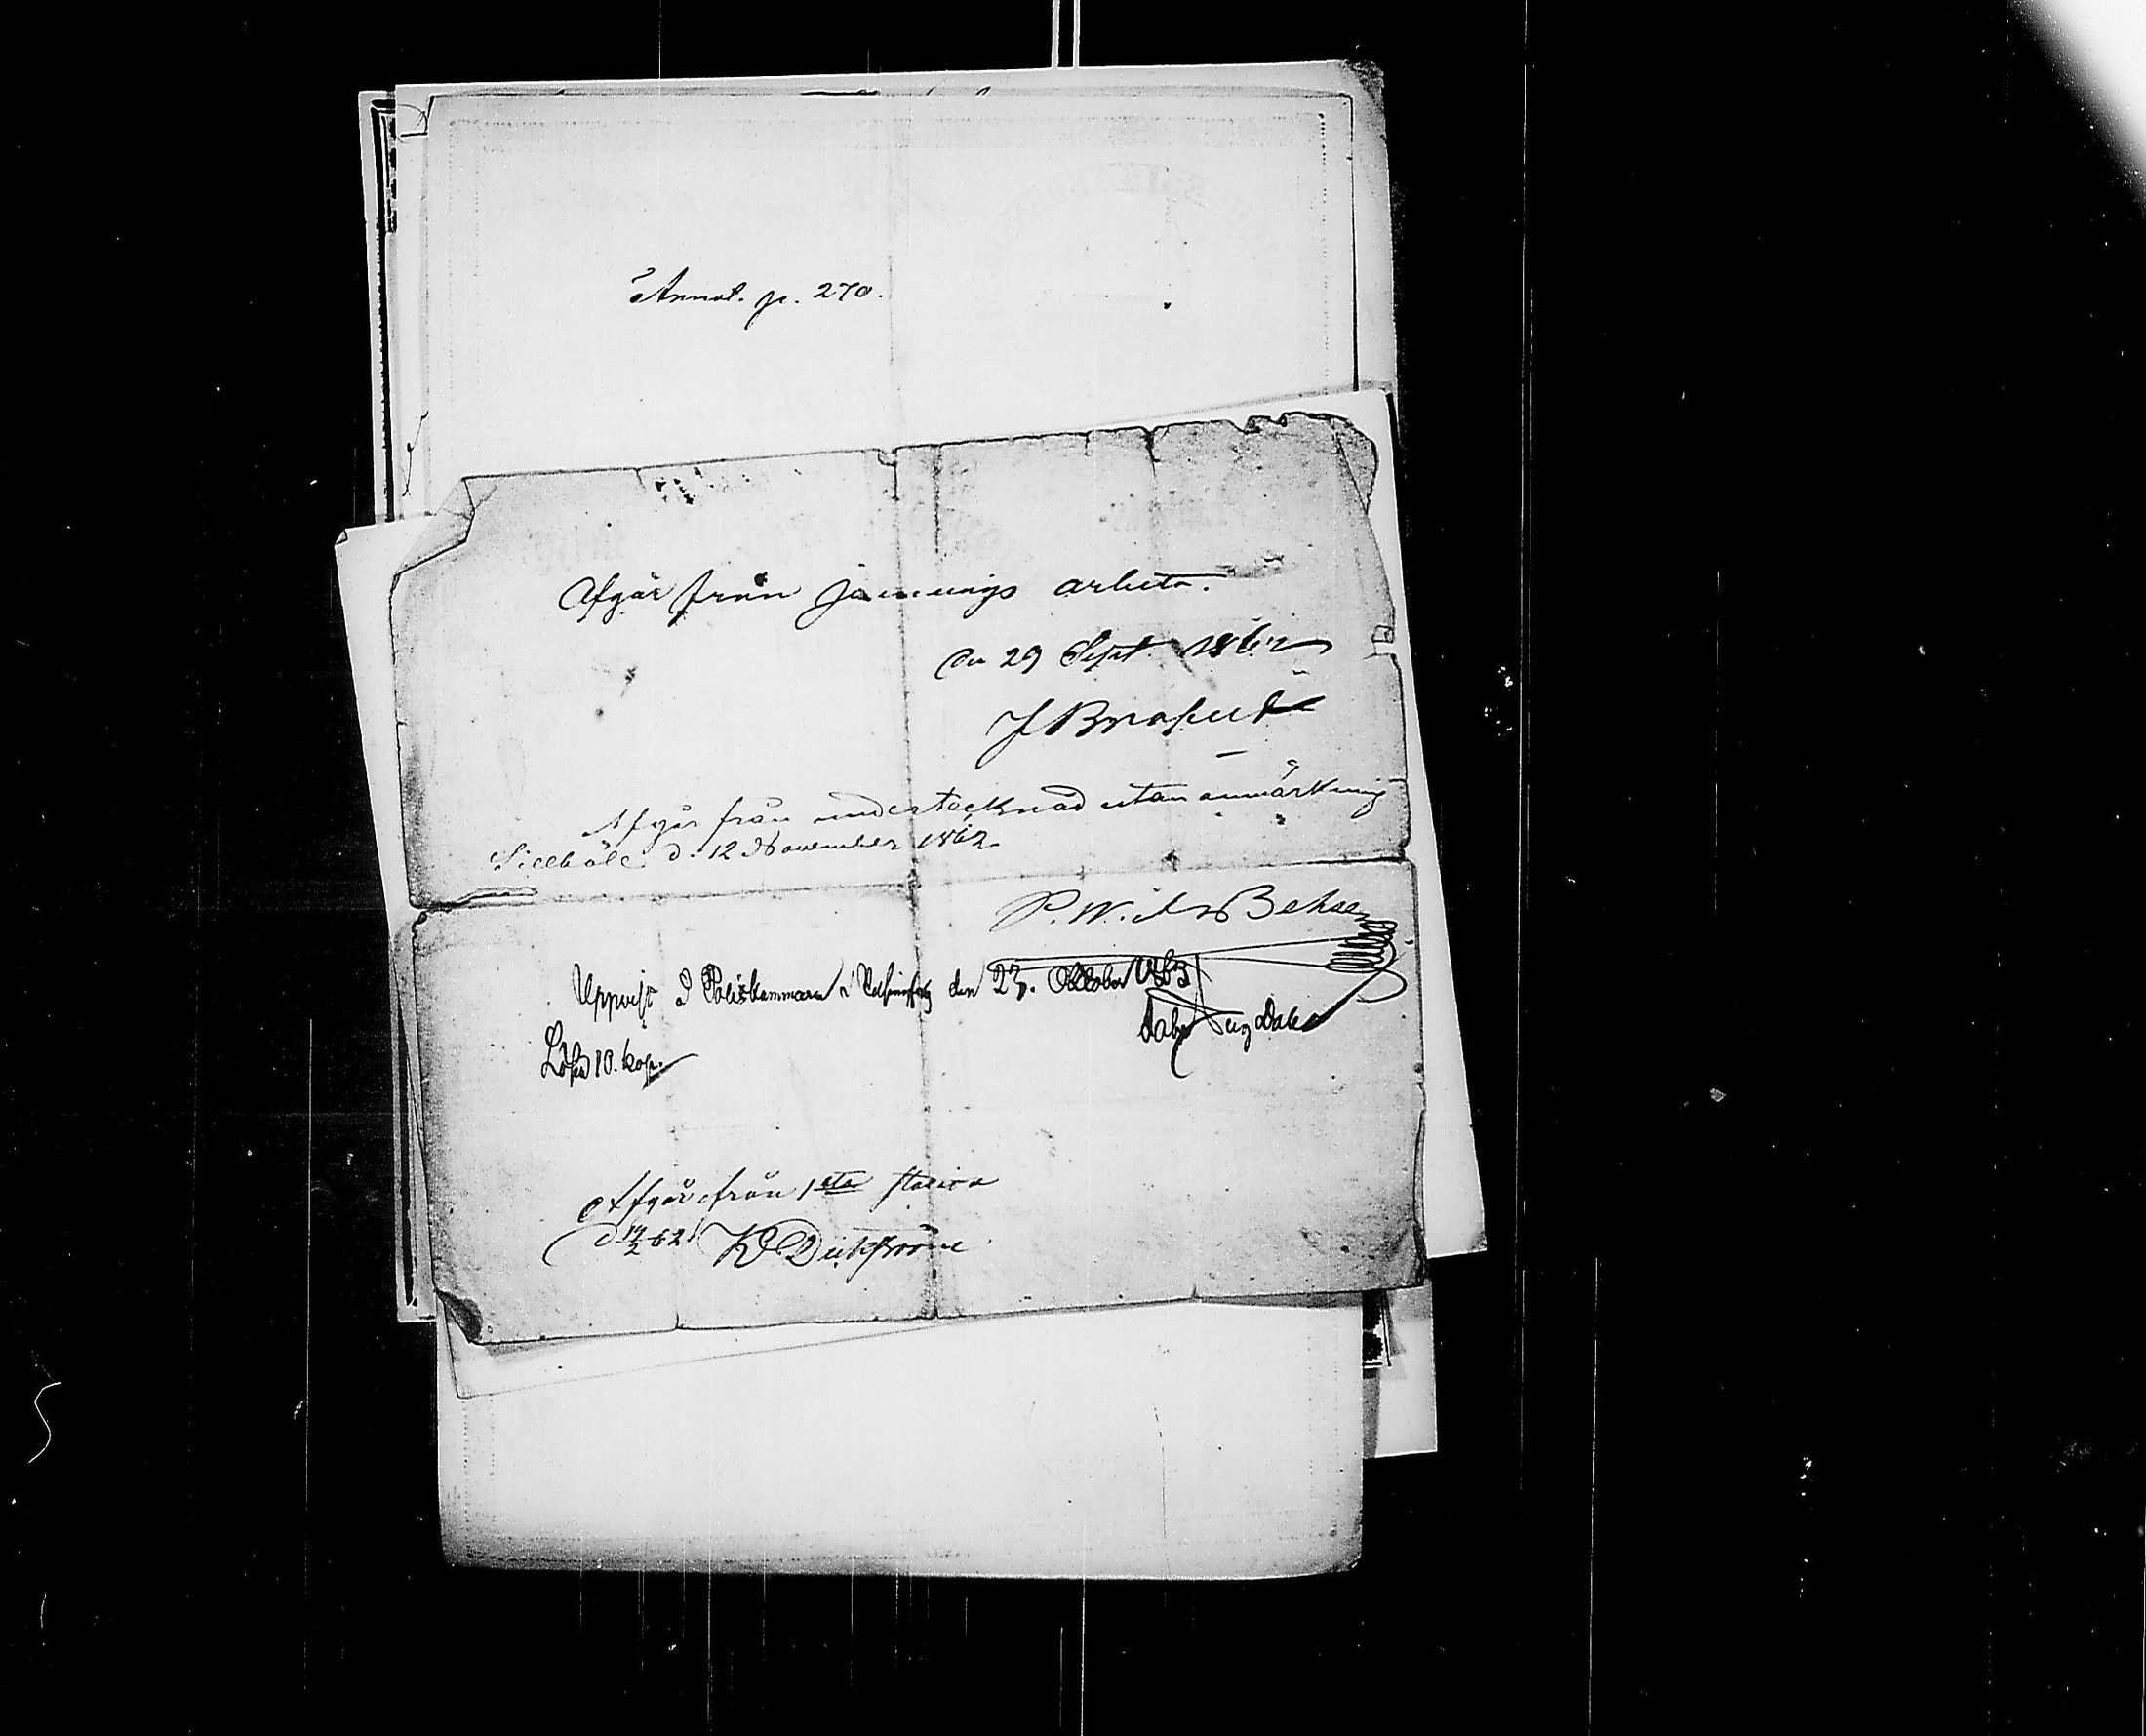 Annot. p. 270.
Afgår från jernvägs arbeta.
den 29 Sept 1862
Afgår från undertecknad utan anmärkning
Sillböle d. 12 November 1862
Uppvist å Poliskammaren i Helsingfors den 23. Oktober 1863
Lösen 10. kop.
Afgår från 1sta station
d 14/2 62